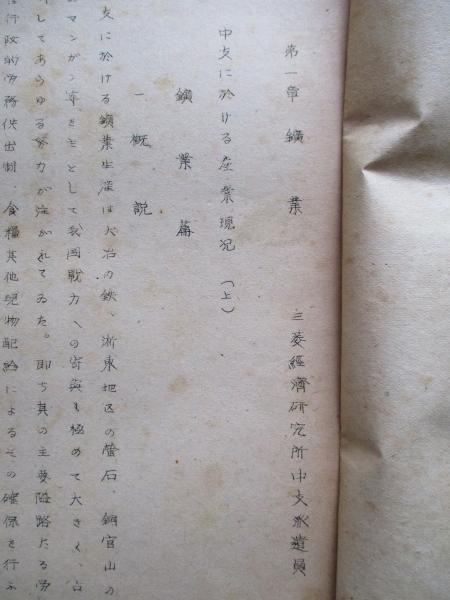 第一章 鑛業
三菱經濟研究所中支派遣員
中支に於ける産業現況 (上)
鑛業篇
一 概説
支に於ける鑛業生産は大冶の鉄、浙東地区の螢石、銅官山の
マンガン等を主として我国戰力への寄與も極めて大きく、
してあらゆる努力が注がれてゐた。即ち其の主要隘路たる労
行政的労務供出制、食糧其他現物配給によるその確保を行ふ